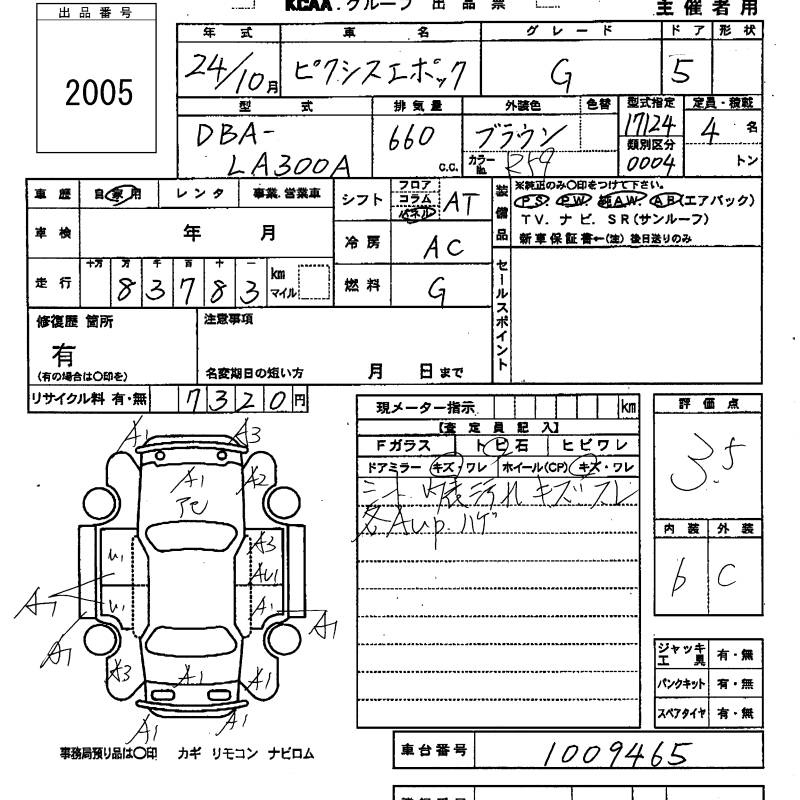 KCAA.グループ 出品票
主催者用
出品番号
2005
年式 車名 グレード ドア 形状
24/10月 ピクシスエポック G 5
型式 排気量 外装色 色替 型式指定 定員・積載
DBA-LA300A 660 c.c. ブラウン 17124 4名
カラーNo. R59 類別区分 0004 トン
車歴 自家用 レンタ 事業.営業車
車検 年 月
走行 十万 万 千 百 十 一
83783 km マイル
シフト フロア コラム パネル AT
冷房 AC
燃料 G
装備品 ※純正のみ〇印をつけて下さい。
PS PW 純AW AB(エアバック)
TV. ナビ. SR(サンルーフ)
新車保証書←(注)後日送りのみ
セールスポイント
修復歴 箇所
有
(有の場合は〇印を)
注意事項
名変期日の短い方 月 日まで
リサイクル料 有・無 7320円
現メーター指示 km
【査定員記入】
Fガラス トビ石 ヒビワレ
ドアミラー キズ・ワレ ホイール(CP) キズ・ワレ
シート 内装汚れ キズ スレ
各A up. ハゲ
評価点
3.5
内装 外装
b C
ジャッキ工具 有・無
パンクキット 有・無
スペアタイヤ 有・無
A1 A3
A1 A2
アヒ
U1 A3
AU1
A1 U1 A1 A1
A1
A3 A1 A1
A1 A1
事務局預り品は〇印 カギ リモコン ナビロム
車台番号 1009465